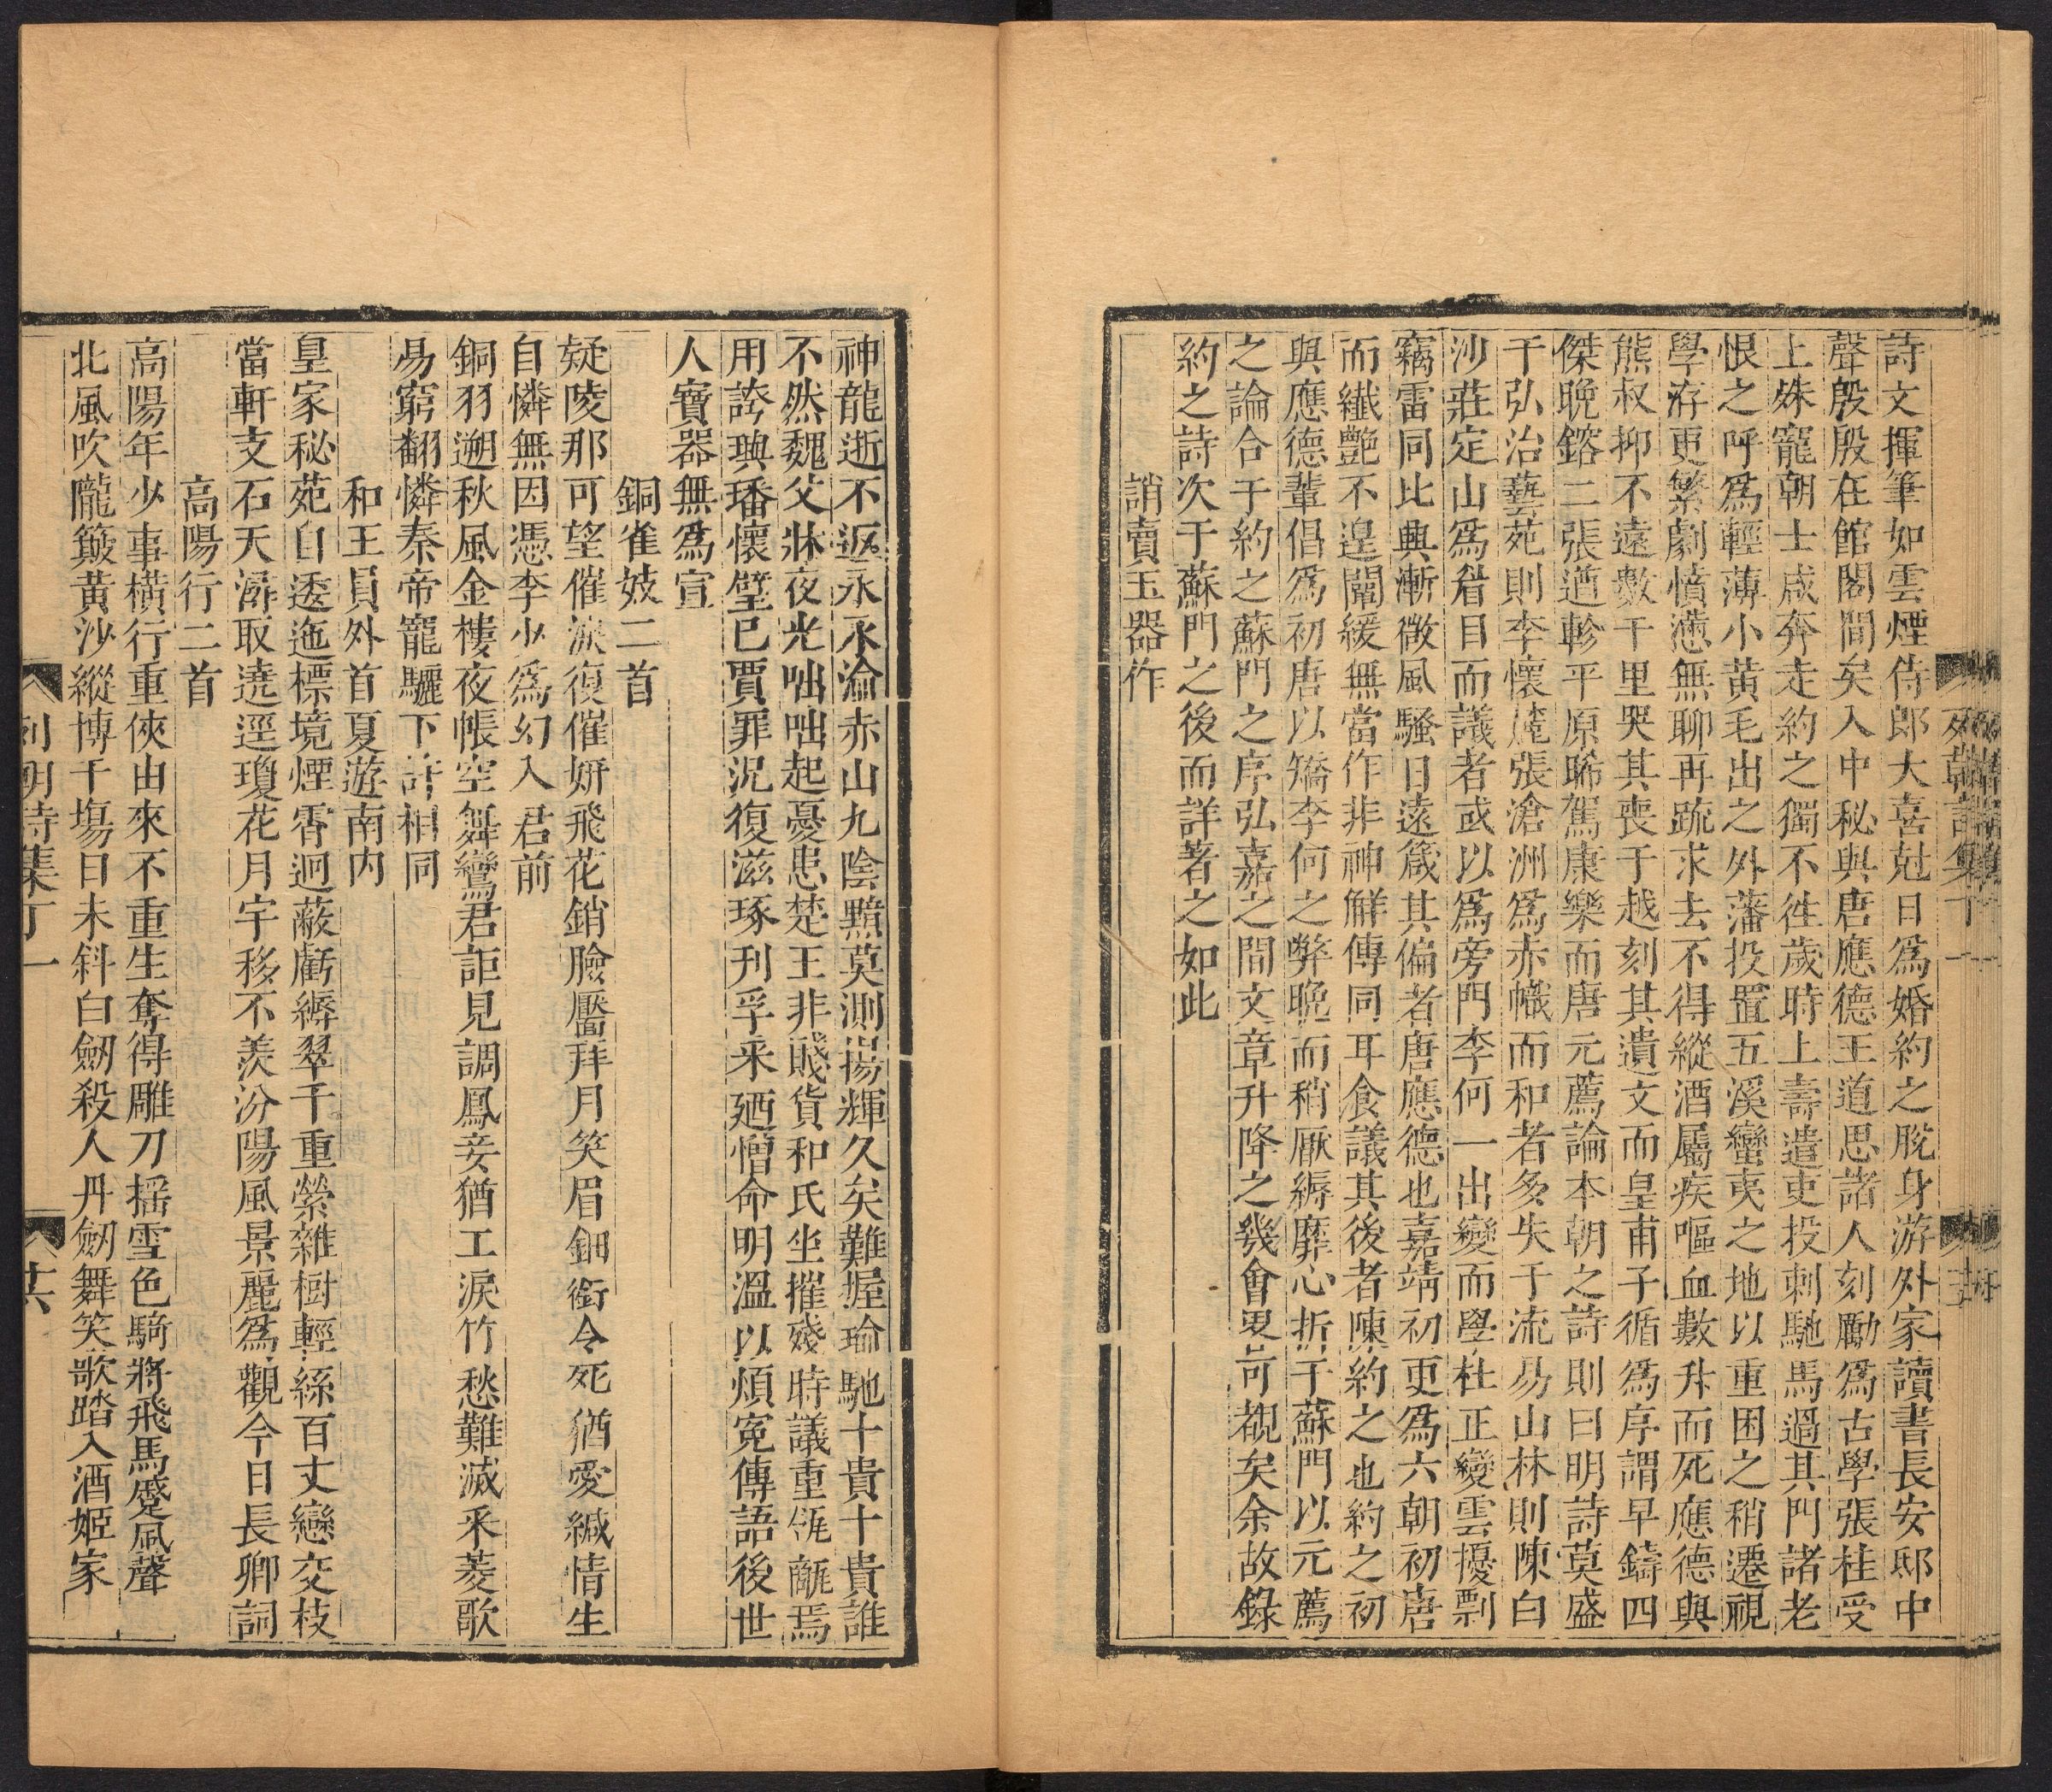 列朝詩集丁一
詩文揮筆如雲煙侍郎大喜尅日為婚約之脫身游外家讀書長安邸中
聲殷殷在館閣間矣入中秘與唐應德王道思諸人刻勵為古學張桂受
上殊寵朝士咸奔走約之獨不徃歲時上壽遣吏投刺馳馬過其門諸老
恨之呼為輕薄小黃毛出之外藩投置五溪蠻夷之地以重困之稍遷視
學洊更繁劇憤懣無聊再疏求去不得縱酒屬疾嘔血數升而死應德與
熊叔抑不遠數千里哭其喪于越刻其遺文而皇甫子循為序謂早鑄四
傑晚鎔二張遒軫平原睎駕康樂而唐元薦論本朝之詩則曰明詩莫盛
于弘治藝苑則李懷麓張滄洲為赤幟而和者多失于流易山林則陳白
沙莊定山為眉目而議者或以為旁門李何一出變而學杜正變雲擾剽
竊雷同比興漸微風騷日遠箴其偏者唐應德也嘉靖初更為六朝初唐
而纖艷不逞闡緩無當作非神解傳同耳食議其後者陳約之也約之初
與應德輩倡為初唐以矯李何之弊晚而稍厭縟靡心折于蘇門以元薦
之論合于約之蘇門之序弘嘉之間文章升降之幾會畧可覩矣余故錄
約之詩次于蘇門之後而詳著之如此
誚賣玉器作
神龍逝不返永永淪赤山九陰黯莫測揚輝久矣難握瑜馳十貴十貴誰
不然魏父牀夜光咄咄起憂患楚王非賤貨和氏坐摧殘時議重瓴甋焉
用誇璵璠懷璧已賈罪況復滋琢刊孚采廼憎命明溫以煩寃傳語後世
人寶器無為宣
銅雀妓二首
疑陵那可望催淚復催妍飛花銷臉靨拜月笑眉鈿銜令死猶愛緘情生
自憐無因憑李少為幻入君前
銅羽遡秋風金樓夜帳空舞鸞君詎見調鳳妾猶工淚竹愁難滅采菱歌
易窮翻憐秦帝寵驪下許相同
和王員外首夏遊南內
皇家秘苑自逶迤標境煙霄迥蔽虧縟翠千重縈雜樹輕絲百丈戀交枝
當軒支石天潯取遶逕瓊花月宇移不羨汾陽風景麗為觀今日長卿詞
高陽行二首
高陽年少事橫行重俠由來不重生奪得雕刀搖雪色騎將飛馬蹙風聲
北風吹隴簸黃沙縱博千塲日未斜白劒殺人丹劒舞笑歌踏入酒姬家
列朝詩集丁一
廿六